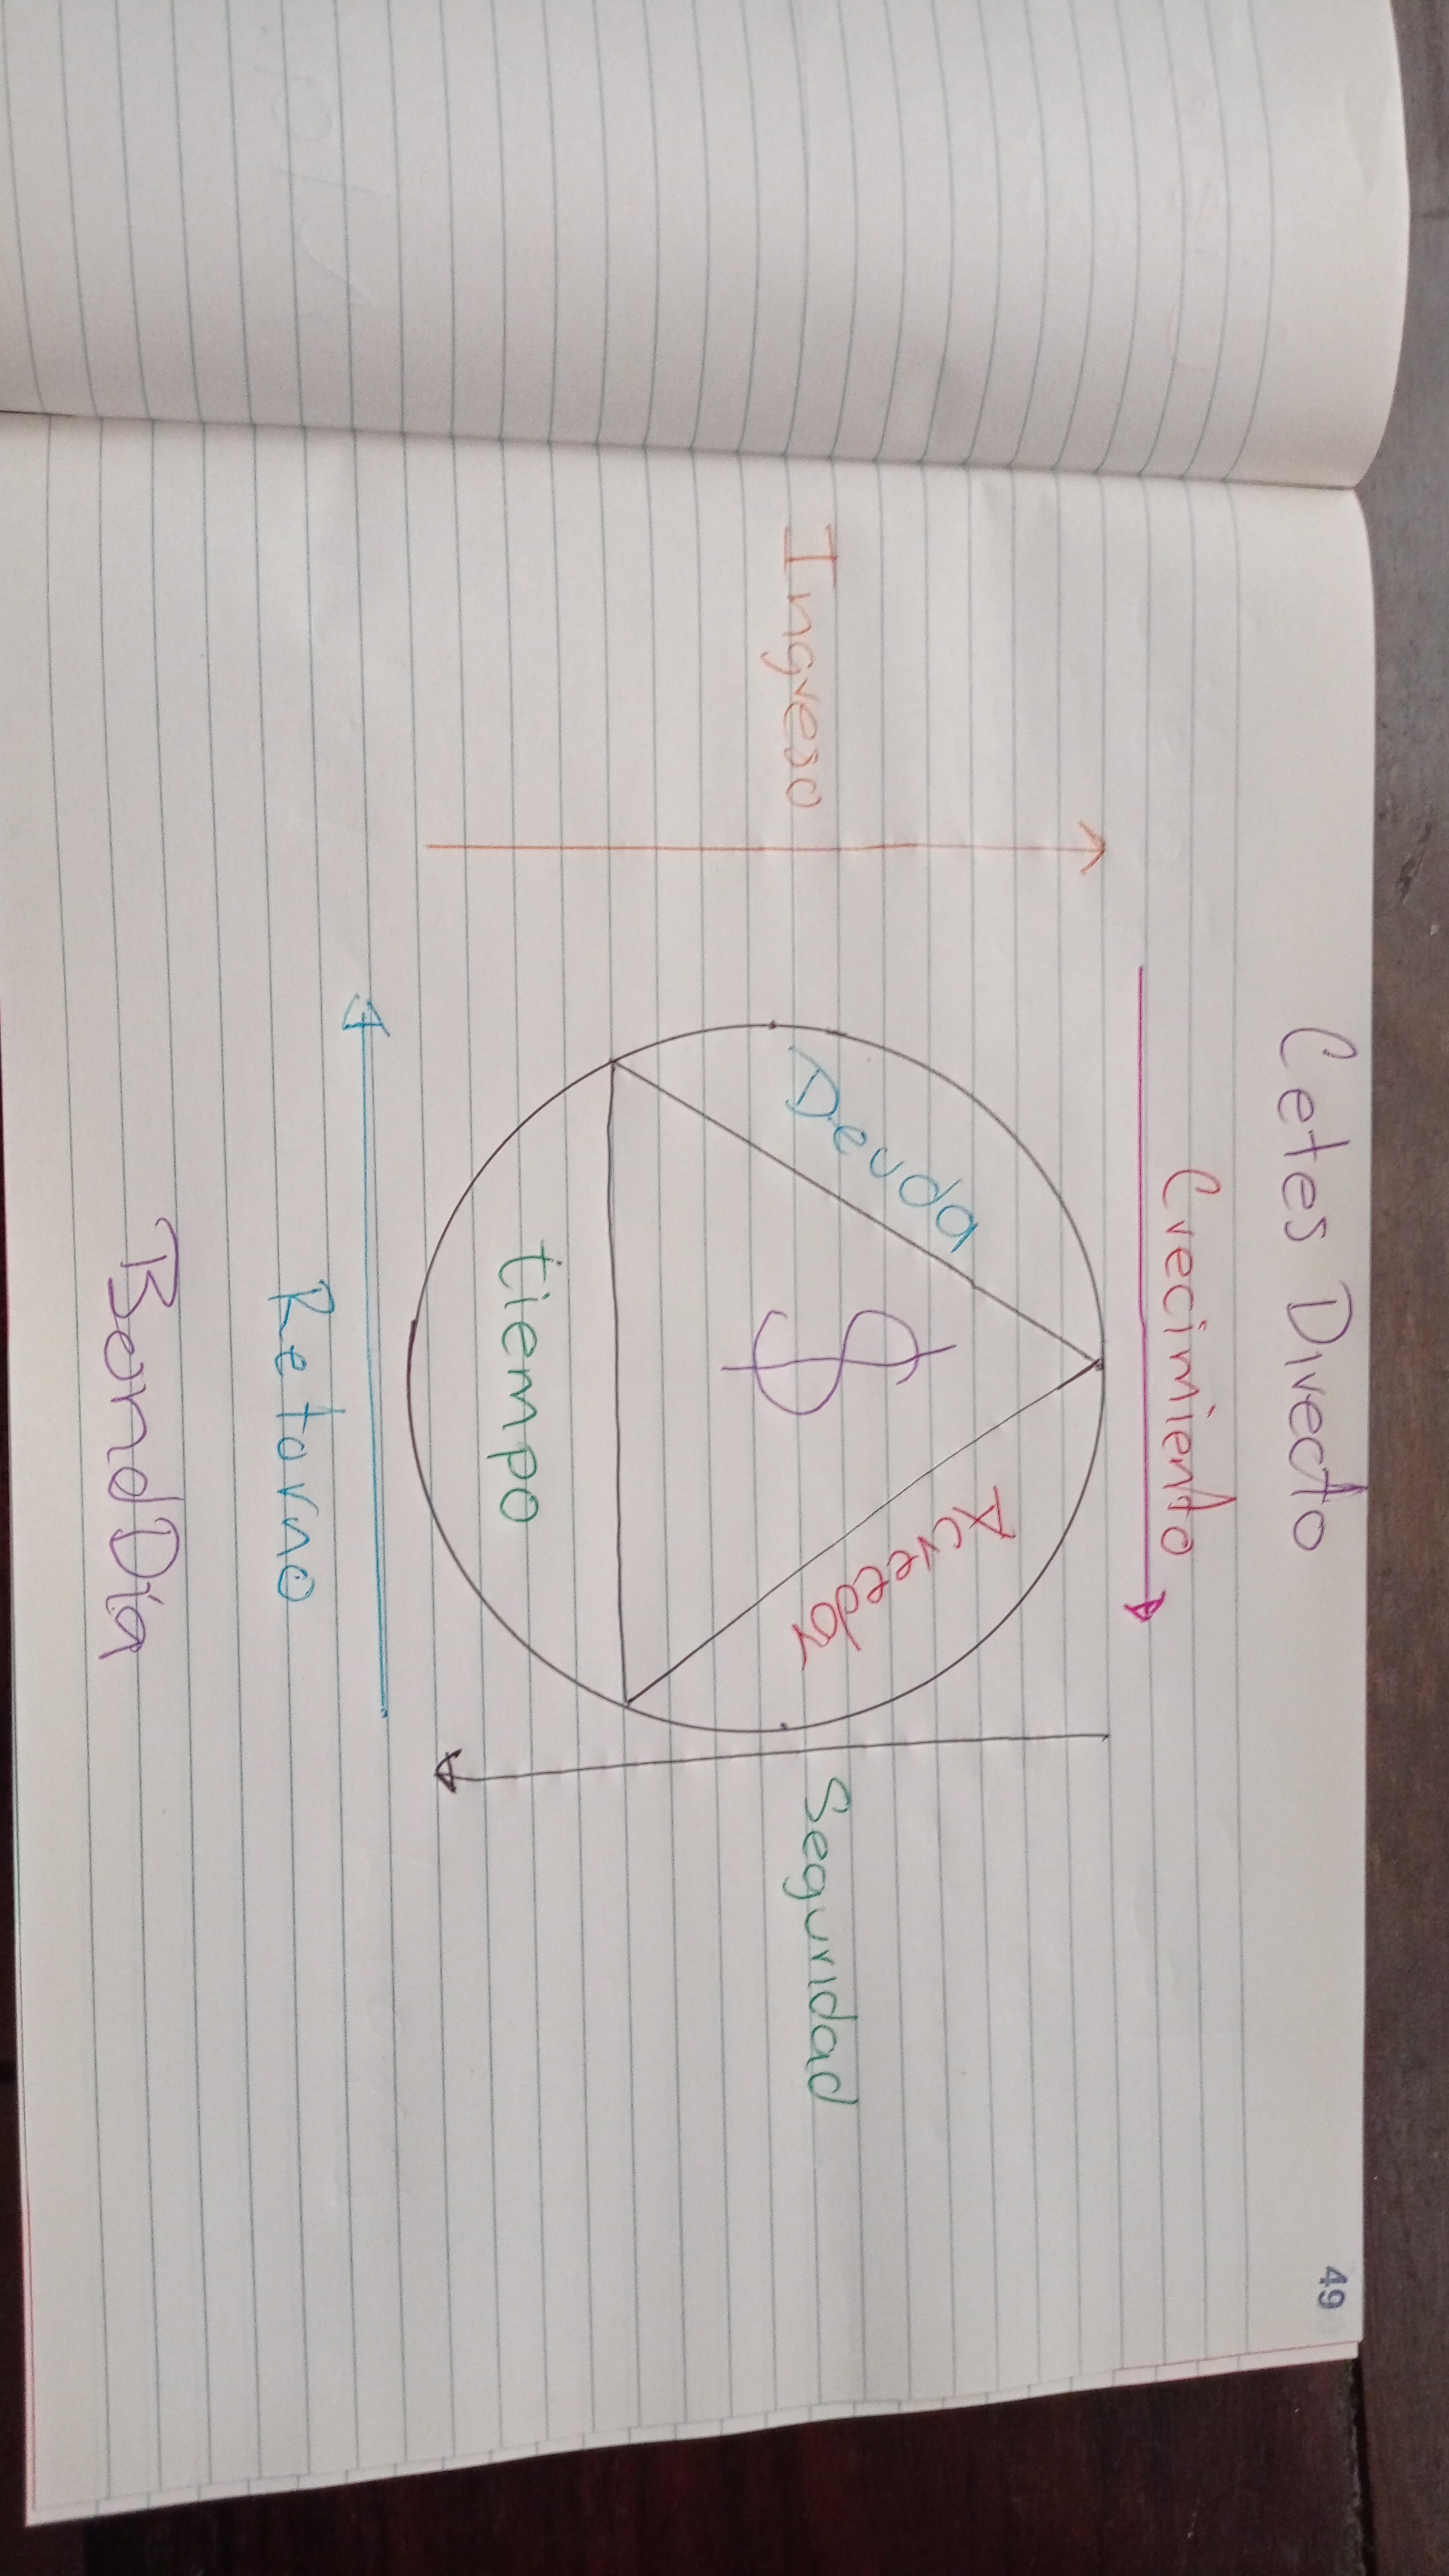 49
Cetes Directo
Crecimiento
Ingreso
Deuda
$
Acreedor
Seguridad
tiempo
Retorno
BondDia